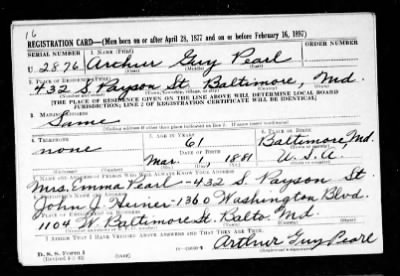 16
REGISTRATION CARD—(Men born on or after April 28, 1877 and on or before February 16, 1897)
SERIAL NUMBER 1. NAME (Print) ORDER NUMBER
U 2876 Arthur Guy Pearl
(First) (Middle) (Last)
2. PLACE OF RESIDENCE (Print)
432 S. Payson St. Baltimore, Md.
(Number and street) (Town, township, village, or city) (County) (State)
[THE PLACE OF RESIDENCE GIVEN ON THE LINE ABOVE WILL DETERMINE LOCAL BOARD
JURISDICTION; LINE 2 OF REGISTRATION CERTIFICATE WILL BE IDENTICAL]
3. MAILING ADDRESS
Same
[Mailing address if other than place indicated on line 2. If same insert word same]
4. TELEPHONE 5. AGE IN YEARS 6. PLACE OF BIRTH
none 61 Baltimore, Md.
DATE OF BIRTH
Mar. 1, 1881 U.S.A.
(Mo.) (Day) (Yr.)
7. NAME AND ADDRESS OF PERSON WHO WILL ALWAYS KNOW YOUR ADDRESS
Mrs. Emma Pearl - 432 S. Payson St.
8. EMPLOYER'S NAME AND ADDRESS
John J. Heiner - 1360 Washington Blvd.
9. PLACE OF EMPLOYMENT OR BUSINESS
1104 W. Baltimore St. Balto. Md.
(County) (State)
I AFFIRM THAT I HAVE VERIFIED ABOVE ANSWERS AND THAT THEY ARE TRUE.
D. S. S. Form 1
Arthur Guy Pearl